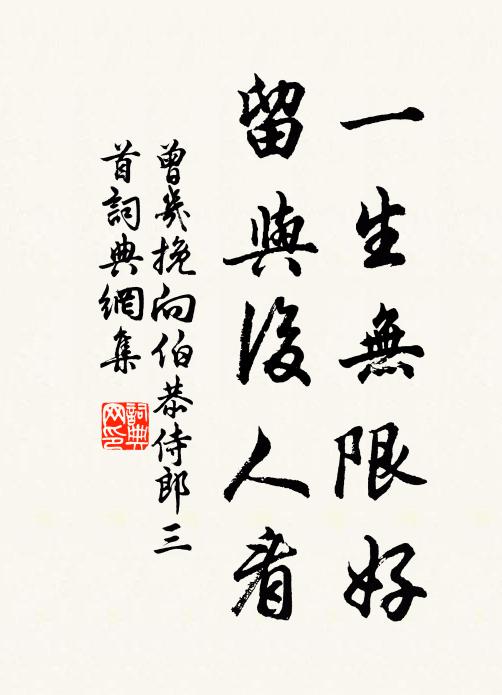 一生無限好
留與後人看
曾幾挽向伯恭侍郎三
首詞典網集
詞典网印